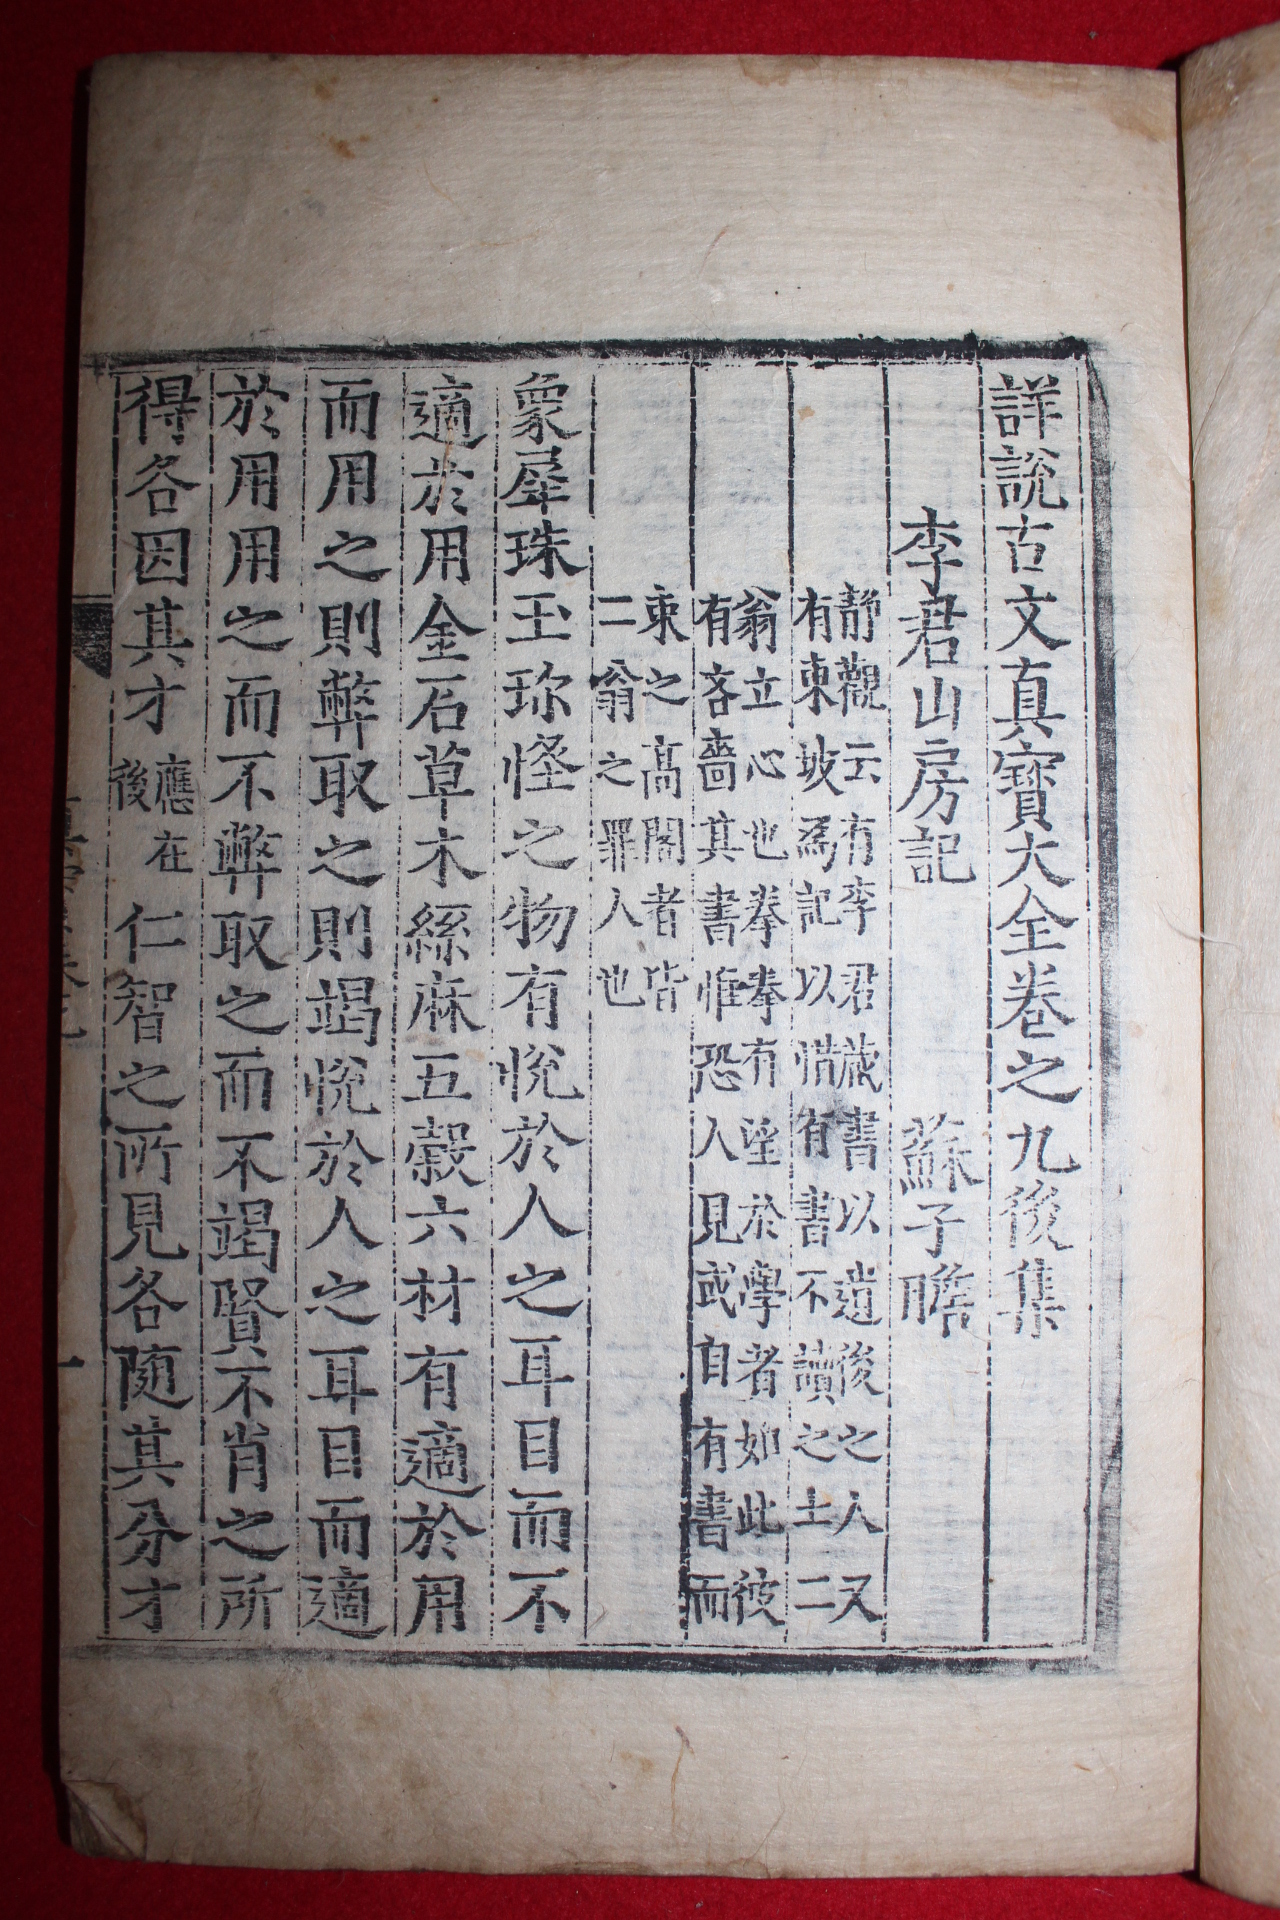 詳說古文真寶大全卷之九後集
李君山房記 蘇子瞻
靜觀云有李君藏書以遺後之人又
有東坡爲記以惜有書不讀之士二
翁立心也拳拳有望於學者如此彼
有吝嗇其書惟恐人見或自有書而
束之高閣者皆
二翁之罪人也
象犀珠玉珎怪之物有悅於人之耳目而不
適於用金石草木絲麻五穀六材有適於用
而用之則弊取之則竭悅於人之耳目而適
於用用之而不弊取之而不竭賢不肖之所
得各因其才應在後仁智之所見各随其分才
一